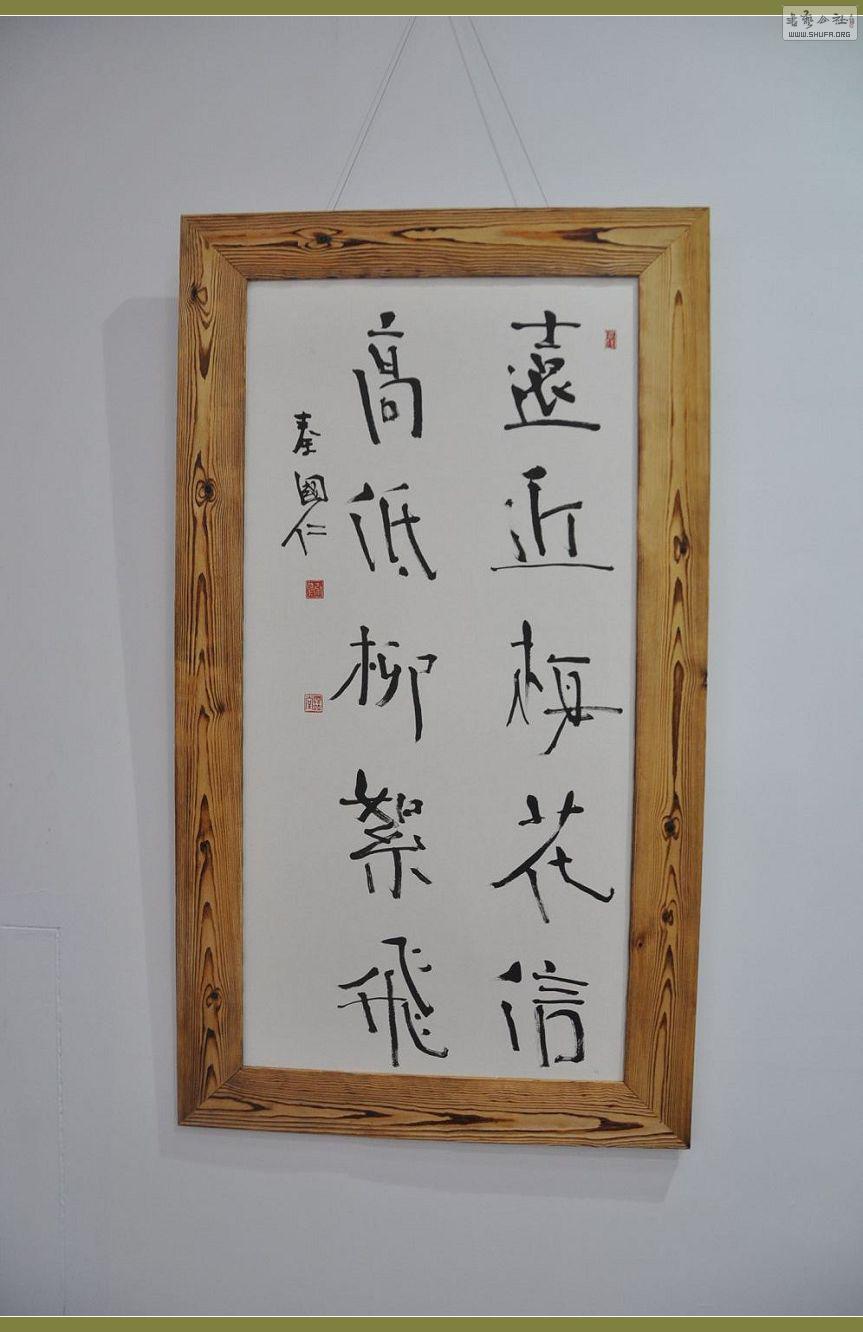 遠近梅花信
高低柳絮飛
秦國仁
書藝公社
WWW.SHUFA.ORG